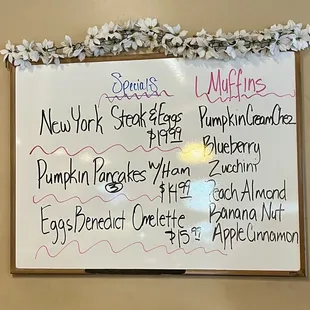 Specials
New York Steak & Eggs
$19.99
Pumpkin Pancakes w/Ham
③ $14.99
Eggs Benedict Omelette
$15.99
Muffins
Pumpkin Cream Chez
Blueberry
Zucchini
Peach Almond
Banana Nut
Apple Cinnamon